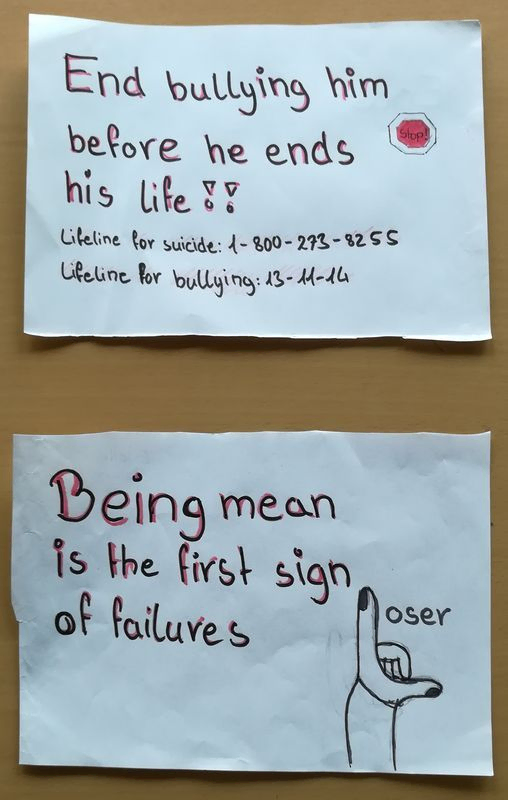 End bullying him
before he ends
Stop!
his life !!
Lifeline for suicide: 1-800-273-8255
Lifeline for bullying: 13-11-14
Being mean
is the first sign
of failures
Loser